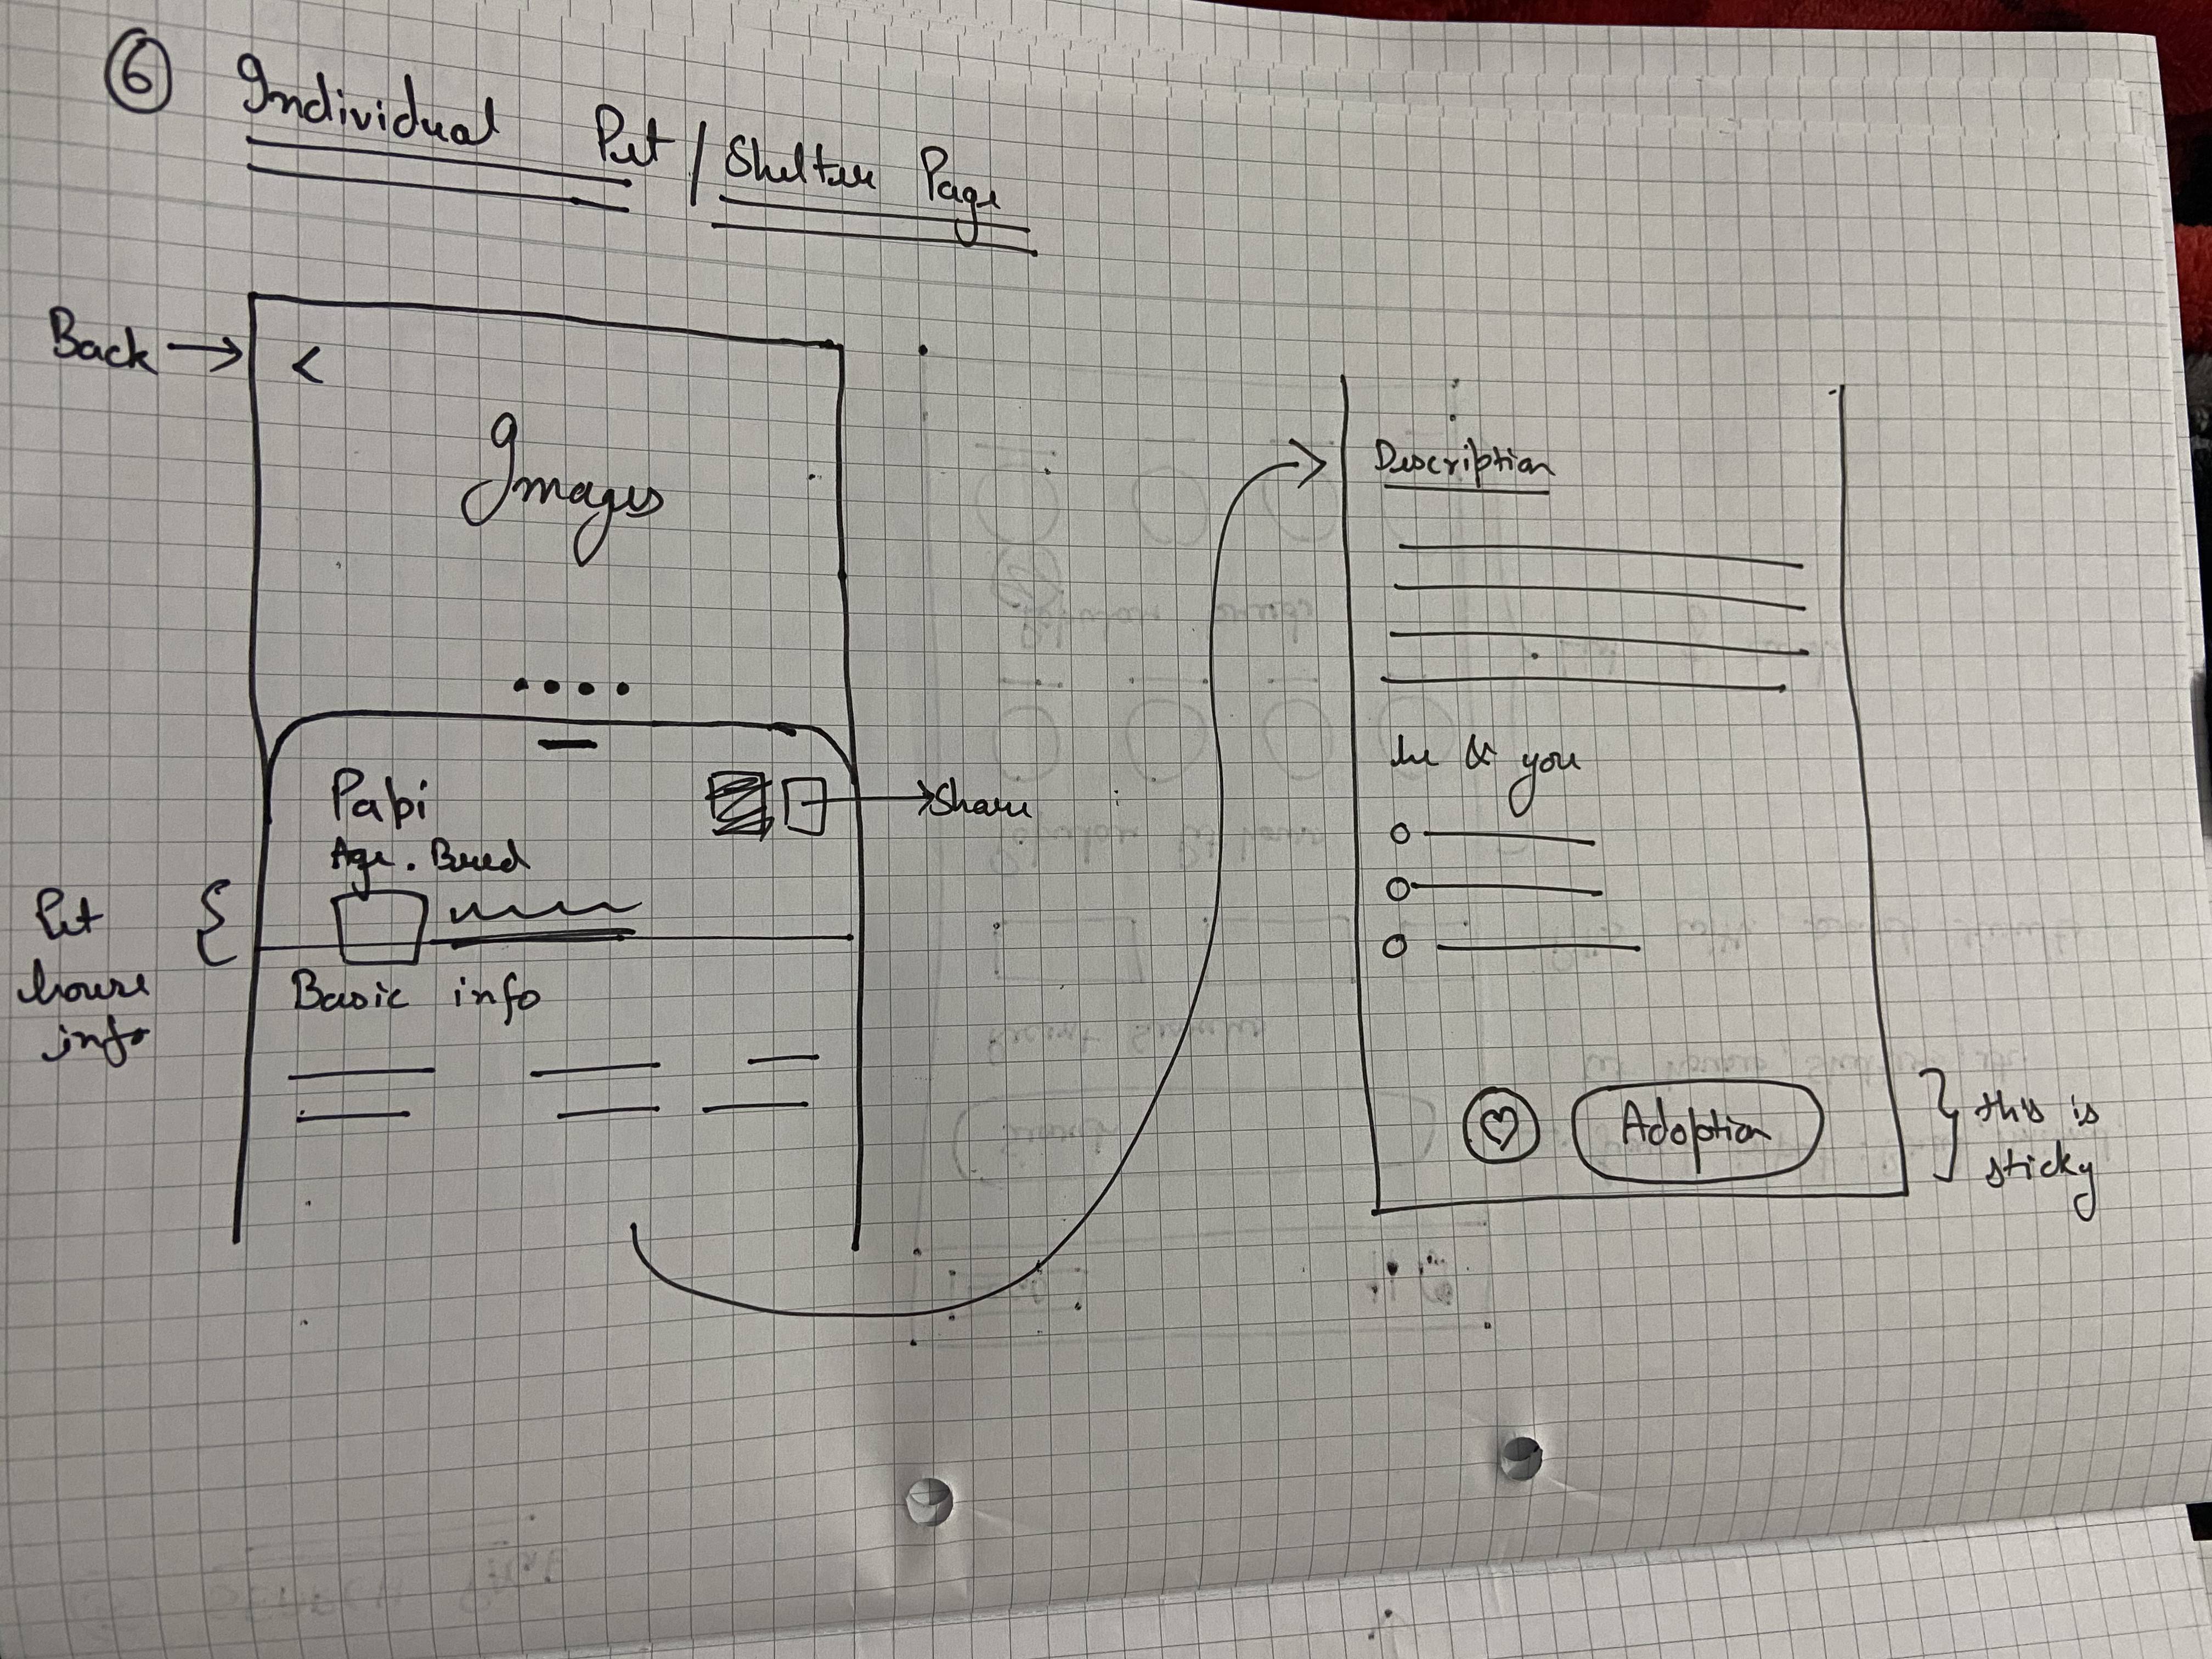 6 Individual Pet / Shelter Page
Back
<
Images
Papi
Share
Age. Breed
Pet
house
info
Basic info
Description
& you
Adoption
this is
sticky